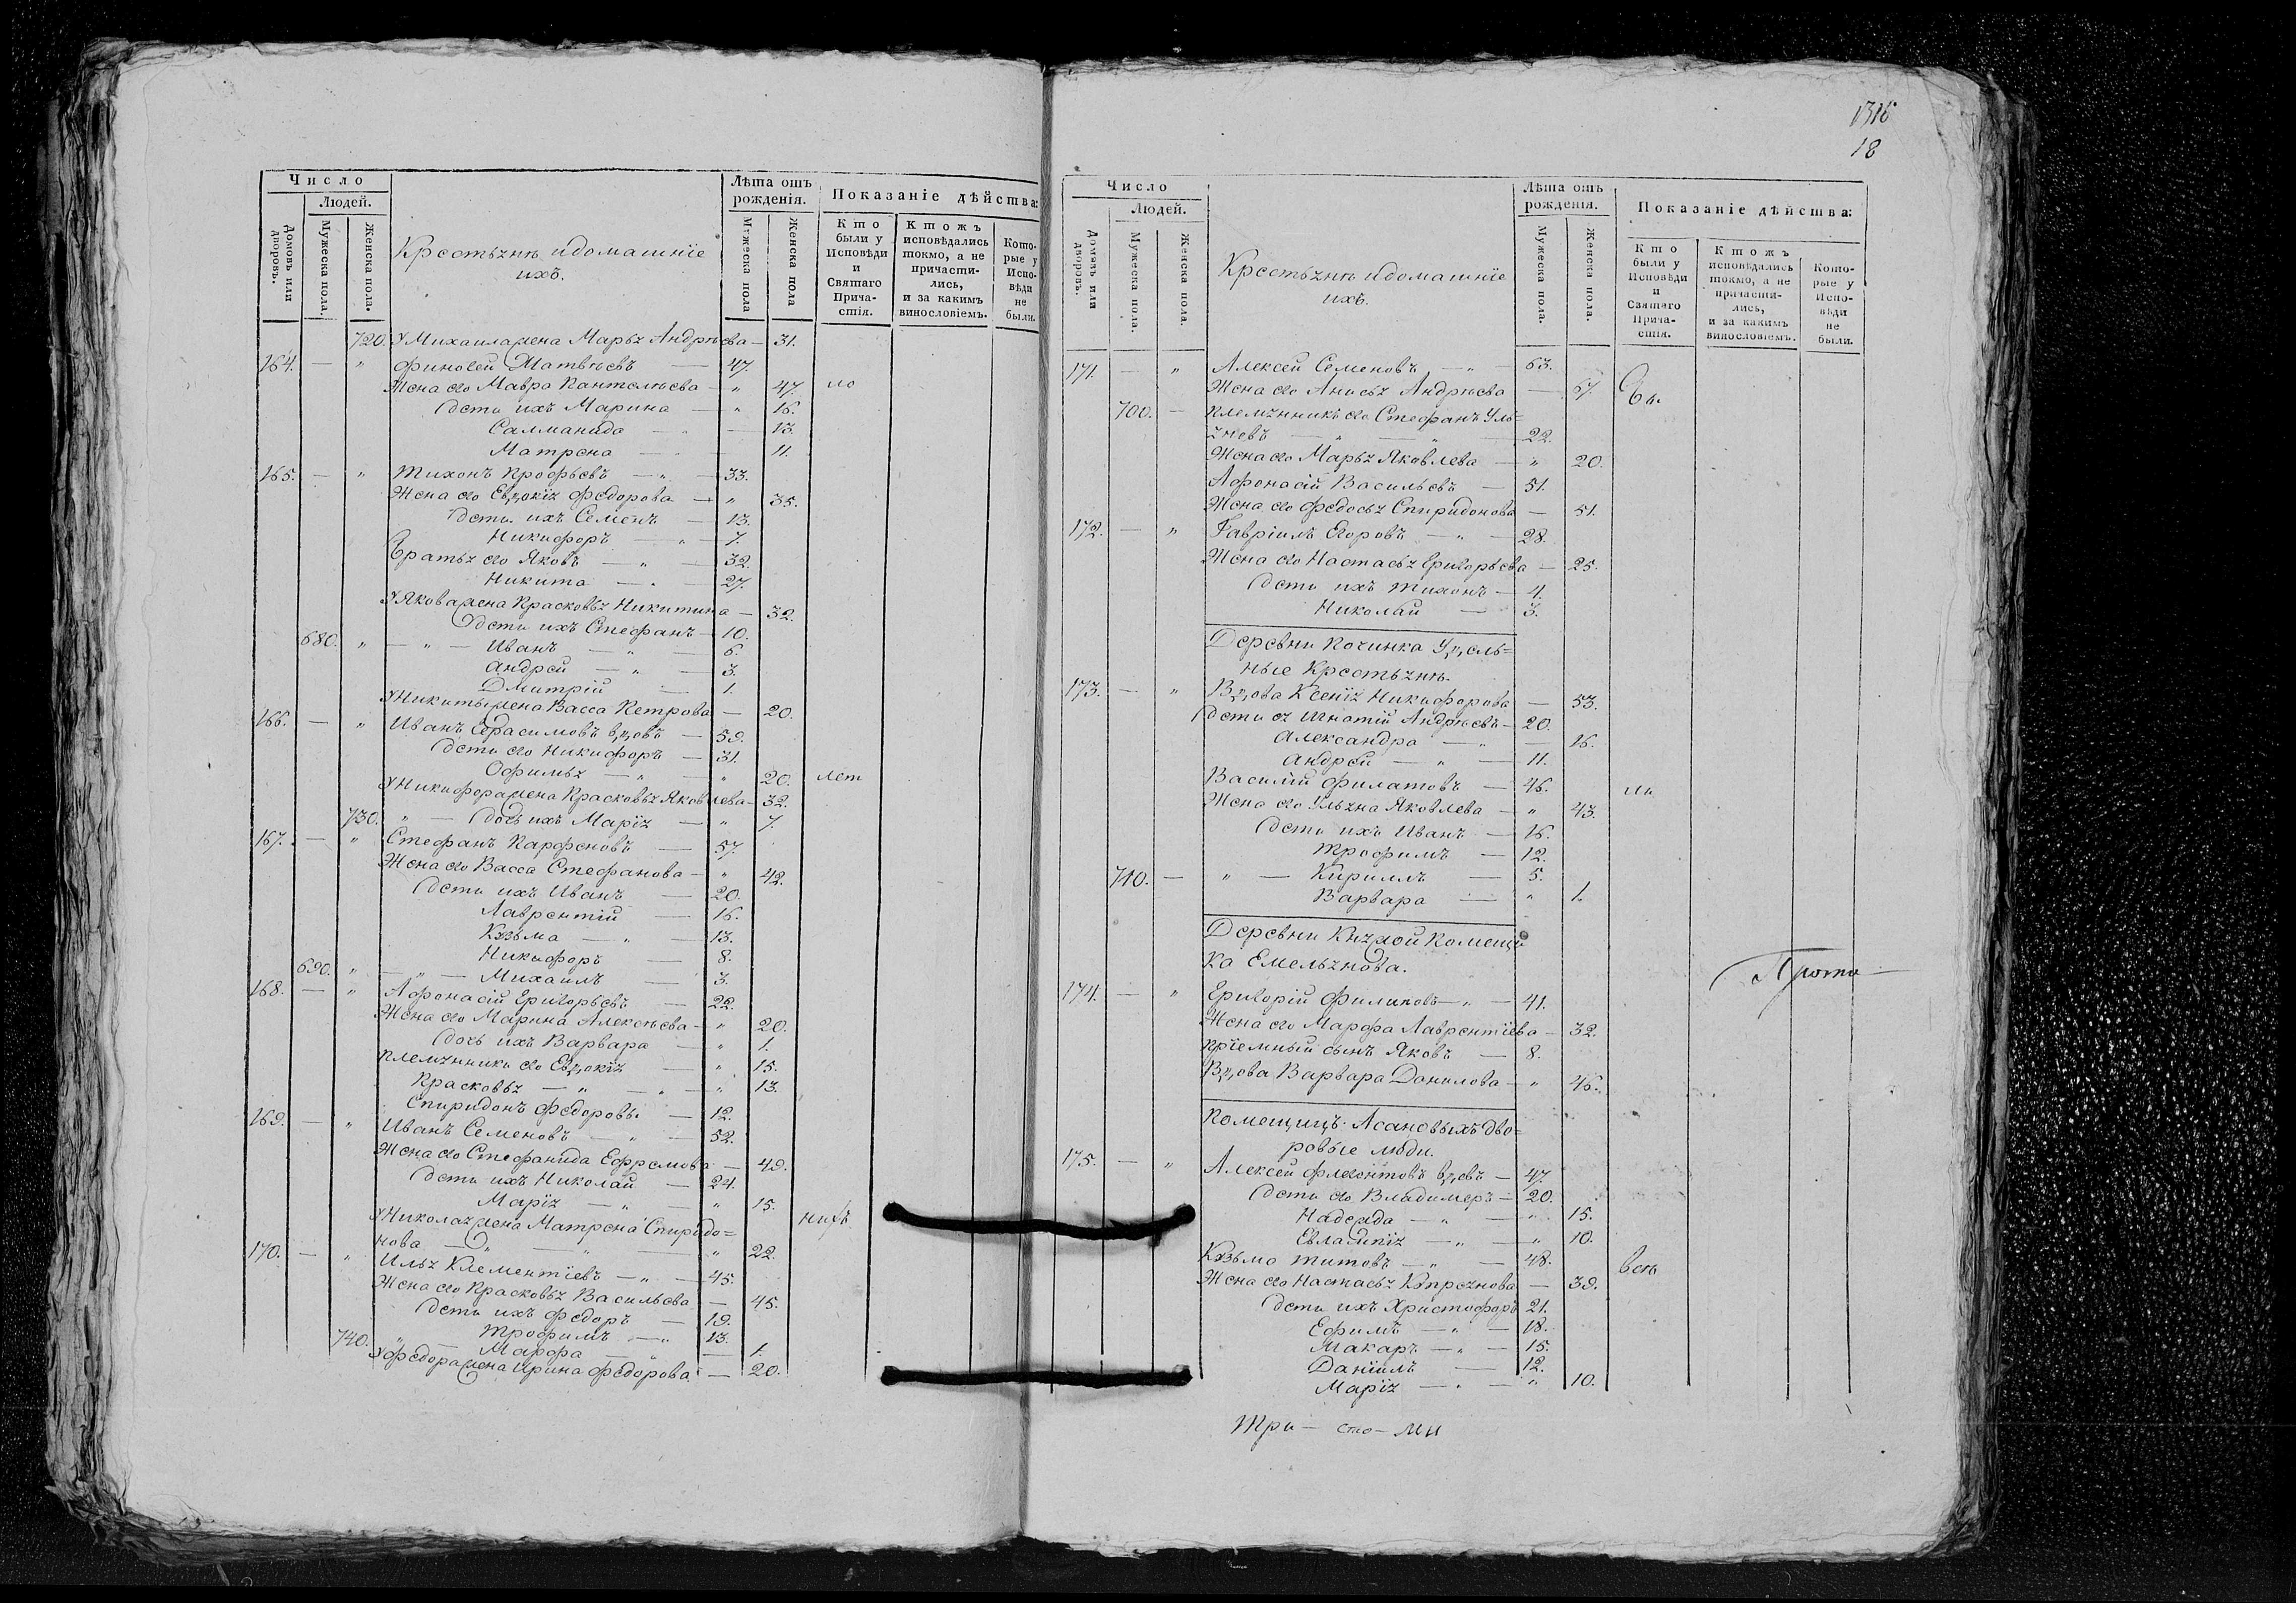 1316
18
Число
Людей.
Домовъ или дворовъ.
Мужеска пола.
Женска пола.
Крестьяне и домашнїе
ихъ.
Лѣта отъ рожденія.
Мужеска пола
Женска пола
Показаніе дѣйства:
Кто были у Исповѣди и Святаго Причастія.
Ктожъ исповѣдались токмо, а не причастились, и за какимъ винословіемъ.
Которые у Исповѣди не были.
720. У Михаила жена Марья Андреева — 31.
164. — " Финогей Матвѣевъ — 47.
Жена его Мавра Пантелѣева — " 47.
Дети ихъ Марина — " 16.
Салманида — 13.
Матрена — 11.
165. — " Тихонъ Профьевъ — " — 33.
Жена его Евдокїя Федорова — " 35.
Дети ихъ Семенъ — 13.
Никифоръ — " — 7.
Братья его Яковъ — " — 32.
Никита — " — 27.
У Якова жена Красковья Никитина — 32.
Дети ихъ Стефанъ — 10.
680. " — " — Иванъ — " — 6.
Андрей — " — 3.
Дмитрій — 1.
У Никиты жена Васса Петрова — 20.
166. — " Иванъ Герасимовъ вдовъ — 59.
Дети его Никифоръ — 31.
Офимья — " — " 20.
У Никифора жена Красковья Яковлева — 32.
730. " — Дочь ихъ Марїя — " 7.
167. — " Стефанъ Парфеновъ — 57.
Жена его Васса Стефанова — " 42.
Дети ихъ Иванъ — 20.
Лаврентій — 16.
Кузьма — " — 13.
Никифоръ — 8.
690. " — " — Михаилъ — 3.
168. — " Афонасій Григорьевъ — 22.
Жена его Марина Алексѣева — " 20.
Дочь ихъ Варвара — " 1.
Племянники его Евдокїя — " 15.
Красковья — " — " — " 13.
Спиридонъ Федоровы — 12.
169. — " Иванъ Семеновъ — " — 52.
Жена его Стефанида Ефремова — 49.
Дети ихъ Николай — 24.
Марїя — " — " 15.
У Николая жена Матрена Спиридо=
нова — " — " — " 22.
170. — " Илья Клементїевъ — " — 45.
Жена его Красковья Васильева — 45.
Дети ихъ Федоръ — 19.
Трофимъ — " 13.
740. " — Марфа — " — 1.
У Федора жена Ирина Федорова — 20.
нихъ
Число
Людей.
Домовъ или дворовъ.
Мужеска пола.
Женска пола.
Крестьяне и домашнїе
ихъ.
Лѣта отъ рожденія.
Мужеска пола.
Женска пола.
Показаніе дѣйства:
Кто были у Исповѣди и Святаго Причастія.
Ктожъ исповѣдались токмо, а не причастились, и за какимъ винословіемъ.
Которые у Исповѣди не были.
171. — " Алексей Семеновъ — " — 63.
Жена его Анисья Андреева — 67.
700. — Племянникъ его Стефанъ Уль=
яневъ — " — " — 22.
Жена его Марья Яковлева — " 20.
Афонасій Васильевъ — 51.
Жена его Федосья Спиридонова — 51.
172. — " Гавріилъ Егоровъ — " — 28.
Жена его Настасья Григорьева — 25.
Дети ихъ Тихонъ — 4.
Николай — 3.
Деревни Починка Удель=
ные Крестьяне.
173. — " Вдова Ксенїя Никифорова — 53.
Дети ея Игнатій Андреевъ — 20.
Александра — " — 16.
Андрей — " — 11.
Василій Филатовъ — 46.
Жена его Ульяна Яковлева — " 43.
Дети ихъ Иванъ — 16.
Трофимъ — 12.
710. — " — Кирилъ — 5.
Варвара — " 1.
Деревни Княжой Помещи
ка Емельянова.
174. — " Григорій Филиповъ — " — 41.
Жена его Марфа Лаврентїева — 32.
Прїемный сынъ Яковъ — 8.
Вдова Варвара Данилова — " 46.
Помещицъ Асановыхъ дво=
ровые люди.
175. — " Алексей Флегонтовъ вдовъ — 47.
Дети его Владимеръ — 20.
Надежда — " — " 15.
Евлампїя — " — " 10.
Кузьма Титовъ — " — 48.
Жена его Настасья Купреянова — 39.
Дети ихъ Христофоръ 21.
Ефимъ — " — 18.
Макаръ — " — 15.
Данїилъ — 12.
Марїя — " — " 10.
все
Прото—
Три — сто — мы